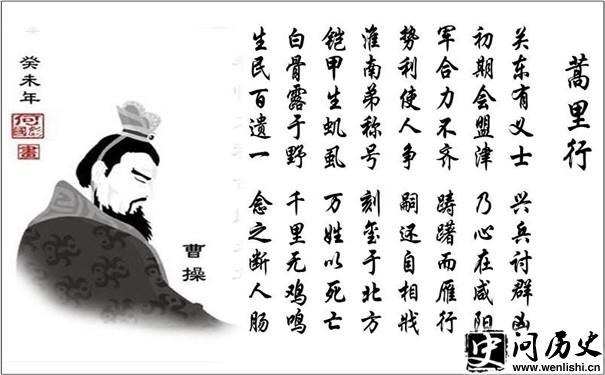 蒿里行
关东有义士 兴兵讨群凶
初期会盟津 乃心在咸阳
军合力不齐 踌躇而雁行
势利使人争 嗣还自相戕
淮南弟称号 刻玺于北方
铠甲生虮虱 万姓以死亡
白骨露于野 千里无鸡鸣
生民百遗一 念之断人肠
曹操
癸未年
畫
史 问历史
www.wenlishi.cn